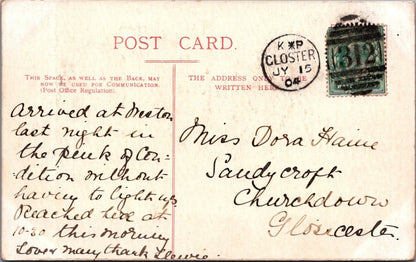 POST CARD.
THIS SPACE, AS WELL AS THE BACK, MAY
NOW BE USED FOR COMMUNICATION.
(Post Office Regulation)
THE ADDRESS ONLY TO BE
WRITTEN HERE
K P
CLOSTER
JY 15
04
312
Arrived at Weston
last night in
the pink of Con-
dition without
having to light up
Reached here at
10-30 this morning
Love & many thanks Lewie.
Miss Dora Haine
Sandycroft
Churchdown
Gloscester